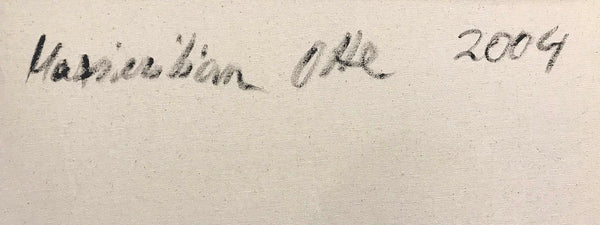 Maximilian Otte 2004